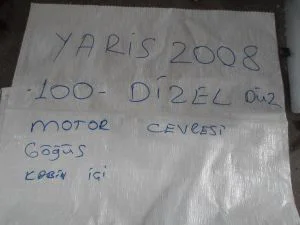 YARİS 2008
-100- DİZEL DÜZ
MOTOR CEVRESİ
GöğüS
KABİN İÇİ